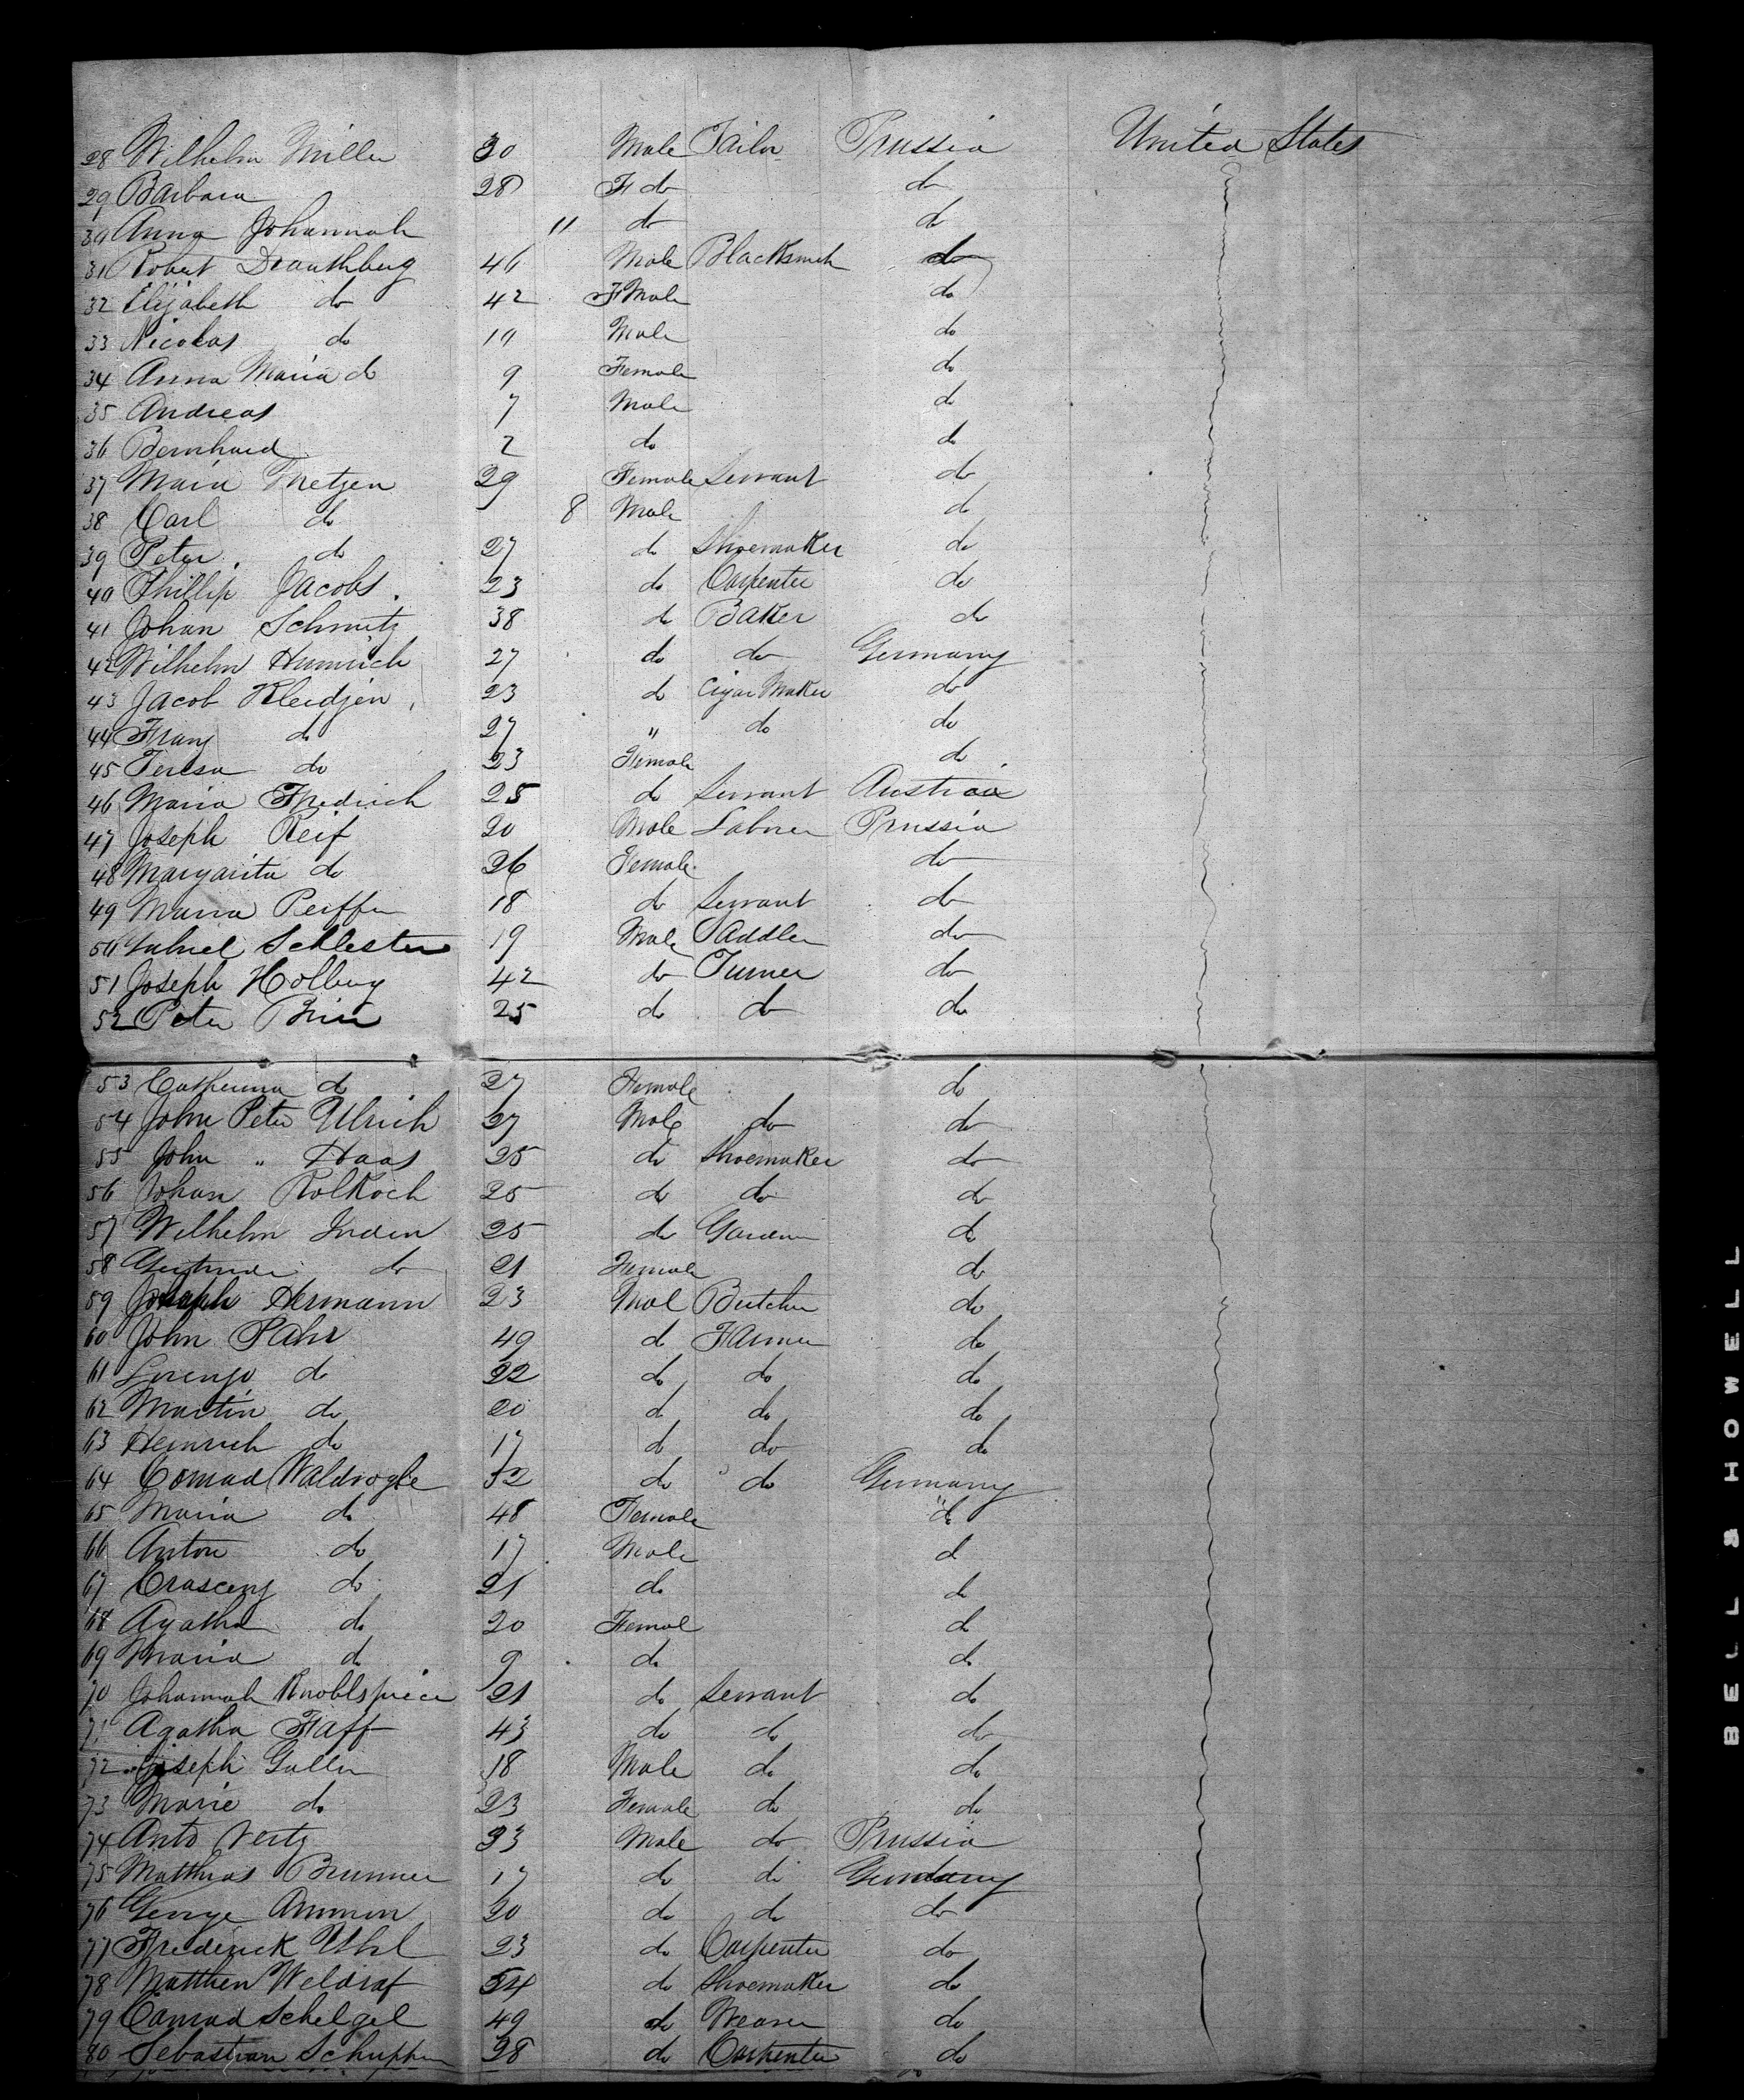 28 Wilhelm Miller 30 Male Tailor Prussia United States
29 Barbara 28 F do do
30 Anna Johannah 11 do do
31 Robert Drauthburg 46 Male Blacksmith do
32 Elizabeth do 42 FMale do
33 Nicolas do 11 Male do
34 Anna Maria do 9 Female do
35 Andreas 7 Male do
36 Bernhard 2 do do
37 Maria Metzen 29 Female Servant do
38 Carl do 8 Male do
39 Peter do 27 do Shoemaker do
40 Phillip Jacobs 23 do Carpenter do
41 Johan Schmitz 38 do Baker do
42 Wilhelm 27 do do Germany
43 Jacob Kleidjen 23 do Cigar Maker do
44 Franz do 27 " do do
45 Teresa do 23 Female do
46 Maria Fredrich 25 do Servant Austria
47 Joseph Reif 20 Male Laborer Prussia
48 Margarita do 26 Female do
49 Maria Peiffer 18 do Servant do
50 Gabriel Schlester 19 Male Saddler do
51 Joseph Holburg 42 do Turner do
52 Peter 25 do do do
53 Catherina do 27 Female do
54 John Peter Ulrich 27 Male do do
55 John " Haas 25 do Shoemaker do
56 Johan Rolkoch 25 do do do
57 Wilhelm Inden 25 do Gardner do
58 Gertrude do 21 Female do
59 Joseph Hermann 23 Mal Butcher do
60 John Pahr 49 do Farmer do
61 Lorenzo do 22 do do do
62 Martin do 20 do do do
63 Heinrich do 17 do do do
64 Conrad Waldvogle 52 do do Germany
65 Maria do 48 Female " do
66 Anton do 17 Male d
67 Crasceny do 21 do do
68 Agatha do 20 Femal do
69 Maria do 9 do do
70 Johannah Knoblspiece 21 do Servant do
71 Agatha Faff 43 do do do
72 Joseph Galler 18 Male do do
73 Marie do 23 Female do do
74 Anto Vertz 33 Male do Prussia
75 Matthias Brunner 17 do do Germany
76 George Ammon 20 do do do
77 Frederick Uhl 23 do Carpenter do
78 Matthew Weldraf 54 do Shoemaker do
79 Conrad Schelgel 49 do Weaver do
80 Sebastian Schupper 28 do Carpenter do
BELL & HOWELL